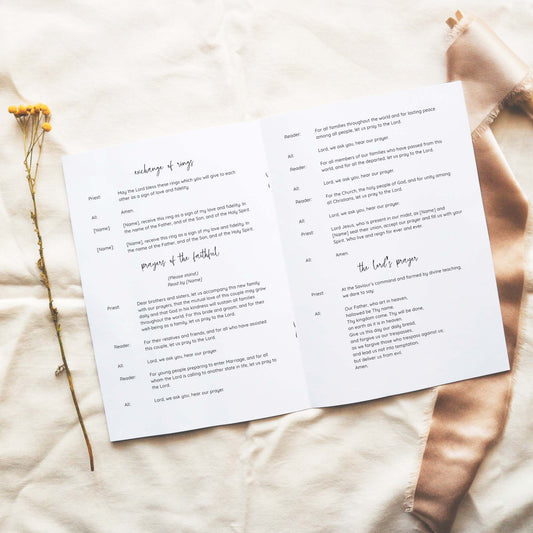 exchange of rings
Priest: May the Lord bless these rings which you will give to each
other as a sign of love and fidelity.
All: Amen.
[Name]: [Name], receive this ring as a sign of my love and fidelity. In
the name of the Father, and of the Son, and of the Holy Spirit.
[Name]: [Name], receive this ring as a sign of my love and fidelity. In
the name of the Father, and of the Son, and of the Holy Spirit.
prayers of the faithful
(Please stand)
Read by [Name]
Priest: Dear brothers and sisters, let us accompany this new family
with our prayers, that the mutual love of this couple may grow
daily and that God in his kindness will sustain all families
throughout the world. For this bride and groom, and for their
well-being as a family, let us pray to the Lord.
Reader: For their relatives and friends, and for all who have assisted
this couple, let us pray to the Lord.
All: Lord, we ask you, hear our prayer.
Reader: For young people preparing to enter Marriage, and for all
whom the Lord is calling to another state in life, let us pray to
the Lord.
All: Lord, we ask you, hear our prayer.
Reader: For all families throughout the world and for lasting peace
among all people, let us pray to the Lord.
All: Lord, we ask you, hear our prayer.
Reader: For all members of our families who have passed from this
world, and for all the departed, let us pray to the Lord.
All: Lord, we ask you, hear our prayer.
Reader: For the Church, the holy people of God, and for unity among
all Christians, let us pray to the Lord.
All: Lord, we ask you, hear our prayer.
Priest: Lord Jesus, who is present in our midst, as [Name] and
[Name] seal their union, accept our prayer and fill us with your
Spirit. Who live and reign for ever and ever.
All: Amen.
the lord's prayer
Priest: At the Saviour's command and formed by divine teaching,
we dare to say:
All: Our Father, who art in heaven,
hallowed be Thy name.
Thy kingdom come. Thy will be done,
on earth as it is in heaven.
Give us this day our daily bread,
and forgive us our trespasses,
as we forgive those who trespass against us;
and lead us not into temptation,
but deliver us from evil.
Amen.